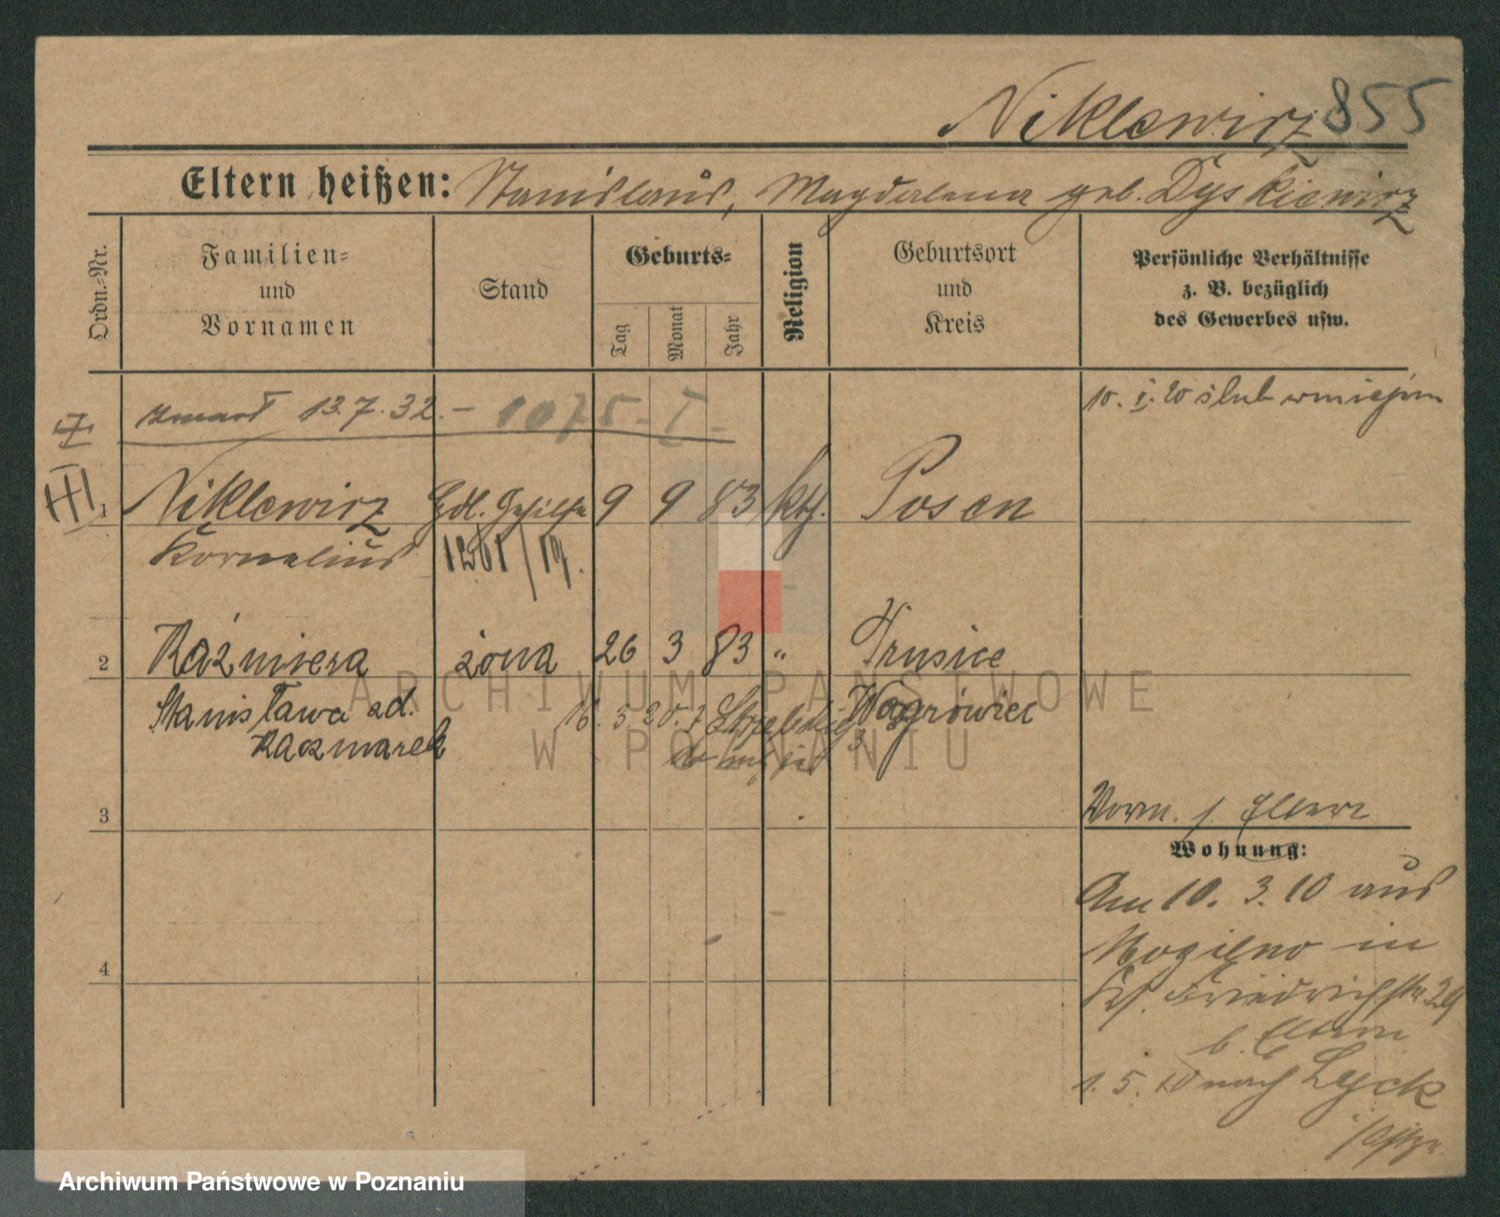 Niklewicz 855
Eltern heißen: Stanislaus, Magdalena geb. Dyskiewicz
Ordn.-Nr.
Familien- und Vornamen
Stand
Geburts-
Tag
Monat
Jahr
Religion
Geburtsort und Kreis
Persönliche Verhältnisse z. B. bezüglich des Gewerbes usw.
zmarł 13.7.32. – 1075 - I -
10. I. 20 ślub
III
1 Niklewicz Hdl. Gehilfe 9 9 83 kth. Posen
Kornelius 1261/19.
2 Kaźmiera żona 26 3 83 " Prusice
Stanisława ad. 16. 5. 20. Wągrówiec
Kaczmarek
3
Vorm. s. Eltern
Wohnung:
Am 10. 3. 10 aus
Mogilno in
4
Friedrichstr. 29
b. Eltern
1. 5. 10 nach Lyck
ARCHIWUM PAŃSTWOWE
W POZNANIU
Archiwum Państwowe w Poznaniu